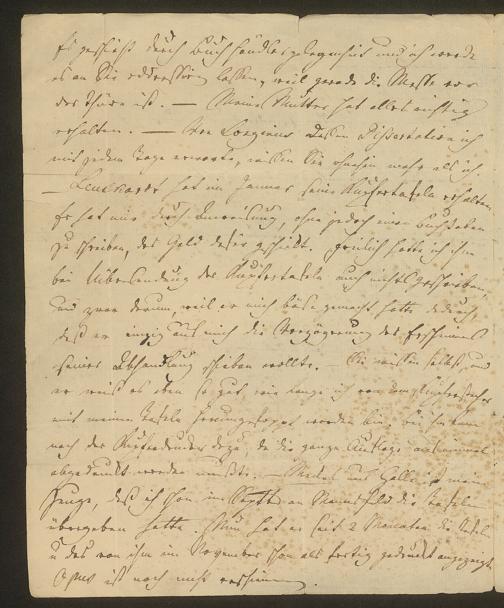 Es geschieht durch Buchhändlergelegenheit und ich werde
es an Sie addressiren lassen, weil gerade die Messe vor
der Thüre ist. — Meine Mutter hat alles richtig
erhalten. — Von Dessen Dissertation ich
mit jedem Tage erwarte, wissen Sie mehr als ich.
— Leuckardt hat im Januar seine Kupfertafeln erhalten.
Er hat mir durch Anweisung, ohne jedoch einen Buchstaben
zu schreiben, das Geld dafür geschickt. Freilich hatte ich ihm
bei Übersendung der Kupfertafeln auch nichts geschrieben,
und zwar darum, weil er mich böse gemacht hatte dadurch,
daß er einzig auf mich die Verzögerung des Erscheinens
seiner Abhandlung schieben wollte. — Sie wissen selbst, und
er weiß es eben so gut, wie lange ich von dem Kupferstecher
mit meinen Tafeln herumgefoppt worden bin.
noch der Kupferdrucker dazu, da die ganze Auflage
abgedruckt werden mußte. — in Halle ist mein
Zeuge, daß ich schon im Septbr an die Tafeln
übergeben hatte. Nun hat er seit 2 Monaten die Tafeln
u das von ihm im November schon als fertig gedruckt angezeigte
Opus ist noch nicht erschienen.